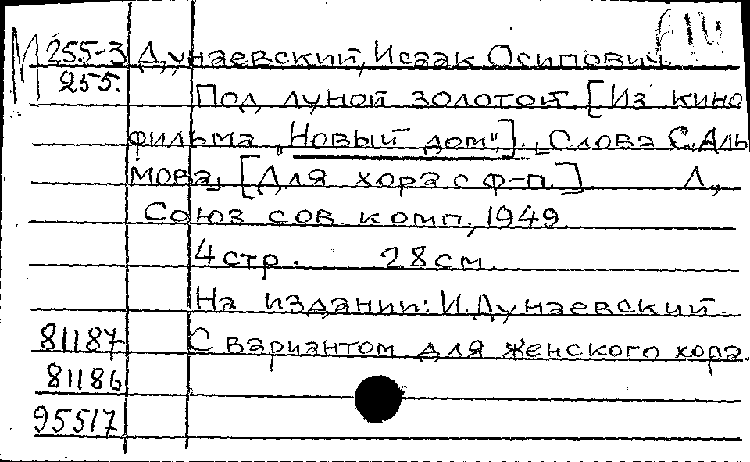 М 255-3 Дунаевский, Исаак Осипович
255. Под луной золотой. [Из кино
фильма „Новый дом"]. Слова С. Аль
мова, [Для хора с ф-п.] Л.,
Союз сов. комп., 1949
4 стр. 28 см.
На издании: И. Дунаевский
81187 С вариантом для женского хора.
81186
95517